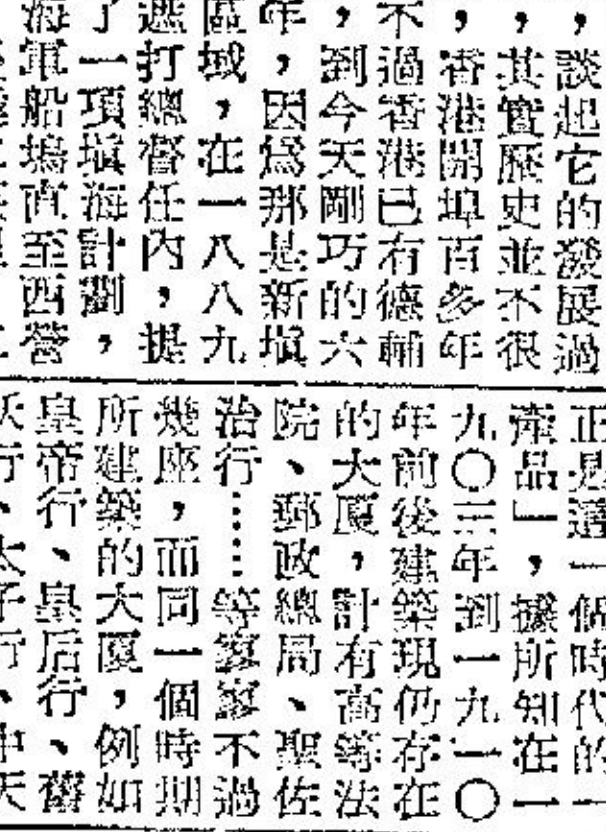 ，談起它的發展過
，其實歷史並不很
，香港開埠百多年
不過香港已有德輔
，到今天剛巧的六
年，因爲那是新塡
區域，在一八八九
遮打總督任內，提
了一項塡海計劃，
海軍船塢直至西營
正是這一個時代的
產品」，據所知在一
九〇三年到一九一〇
年前後建築現仍存在
的大厦，計有高等法
院、郵政總局、聖佐
治行……等寥寥不過
幾座，而同一個時期
所建築的大厦，例如
皇帝行、皇后行、舊
行、太子行、中天